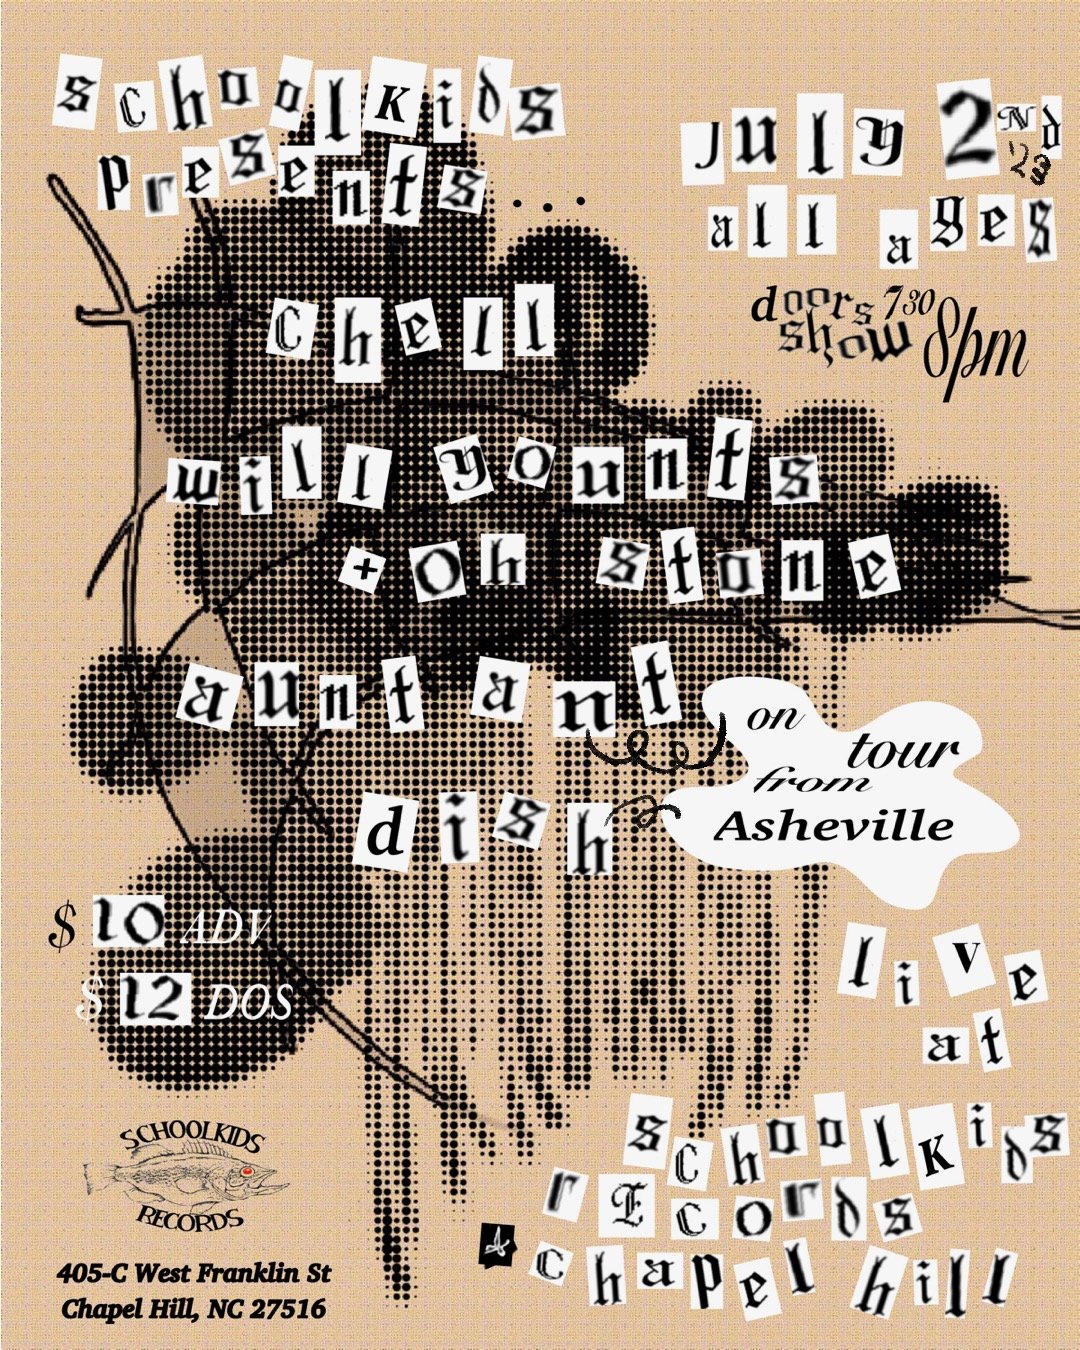 schoolkids
presents...
july 2nd
'23
all ages
doors 730
show 8pm
chell
will younts
+ oh stone
aunt ant
dish
on
tour
from
Asheville
$10 ADV
$12 DOS
live
at
schoolkids
rEcords
chapel hill
SCHOOLKIDS
RECORDS
405-C West Franklin St
Chapel Hill, NC 27516